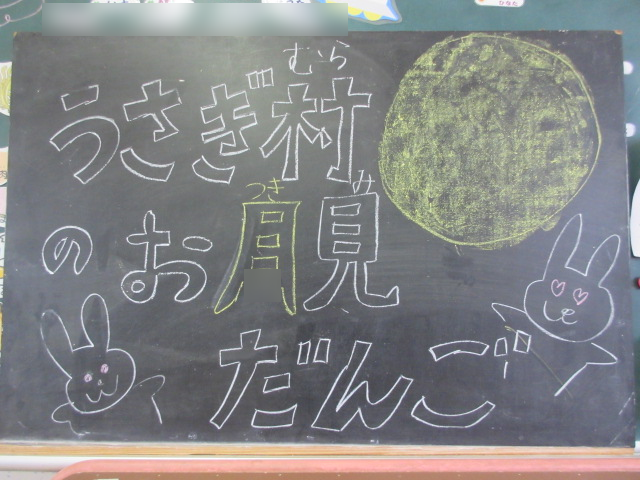 むら
うさぎ村
つき み
のお月見
だんご